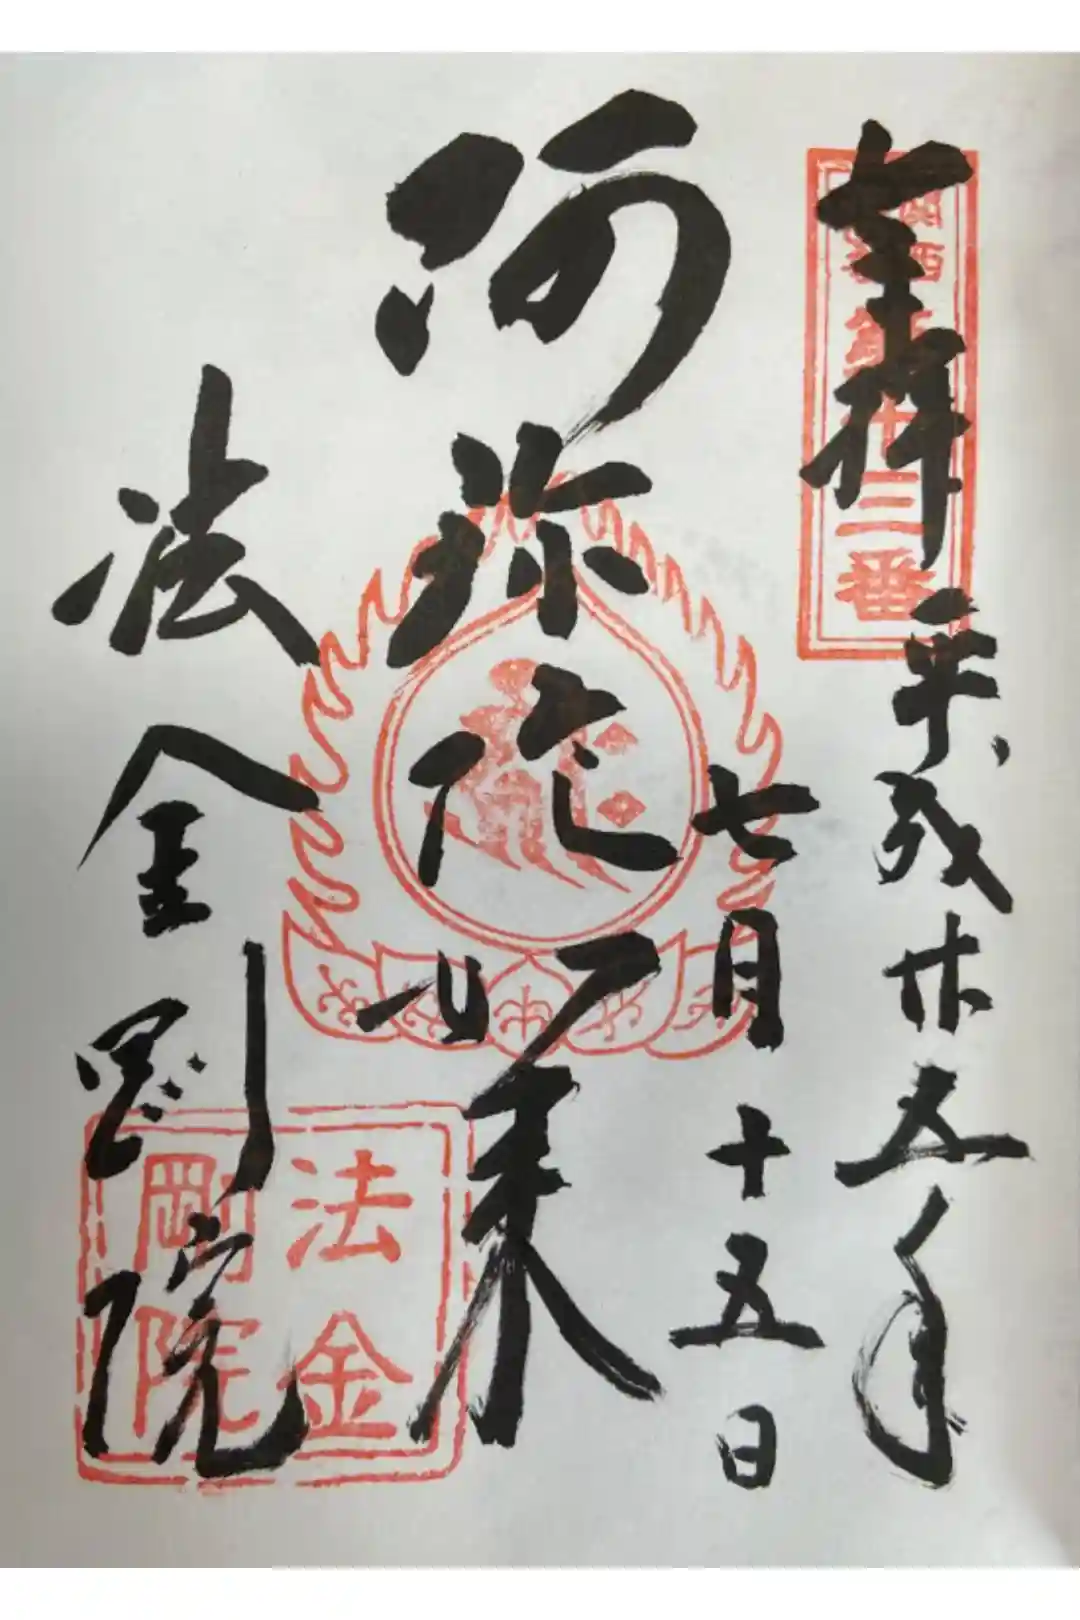 奉拝
平成廿五年
七月十五日
關西
第十三番
阿弥陀如来
法金剛院
法金
剛院